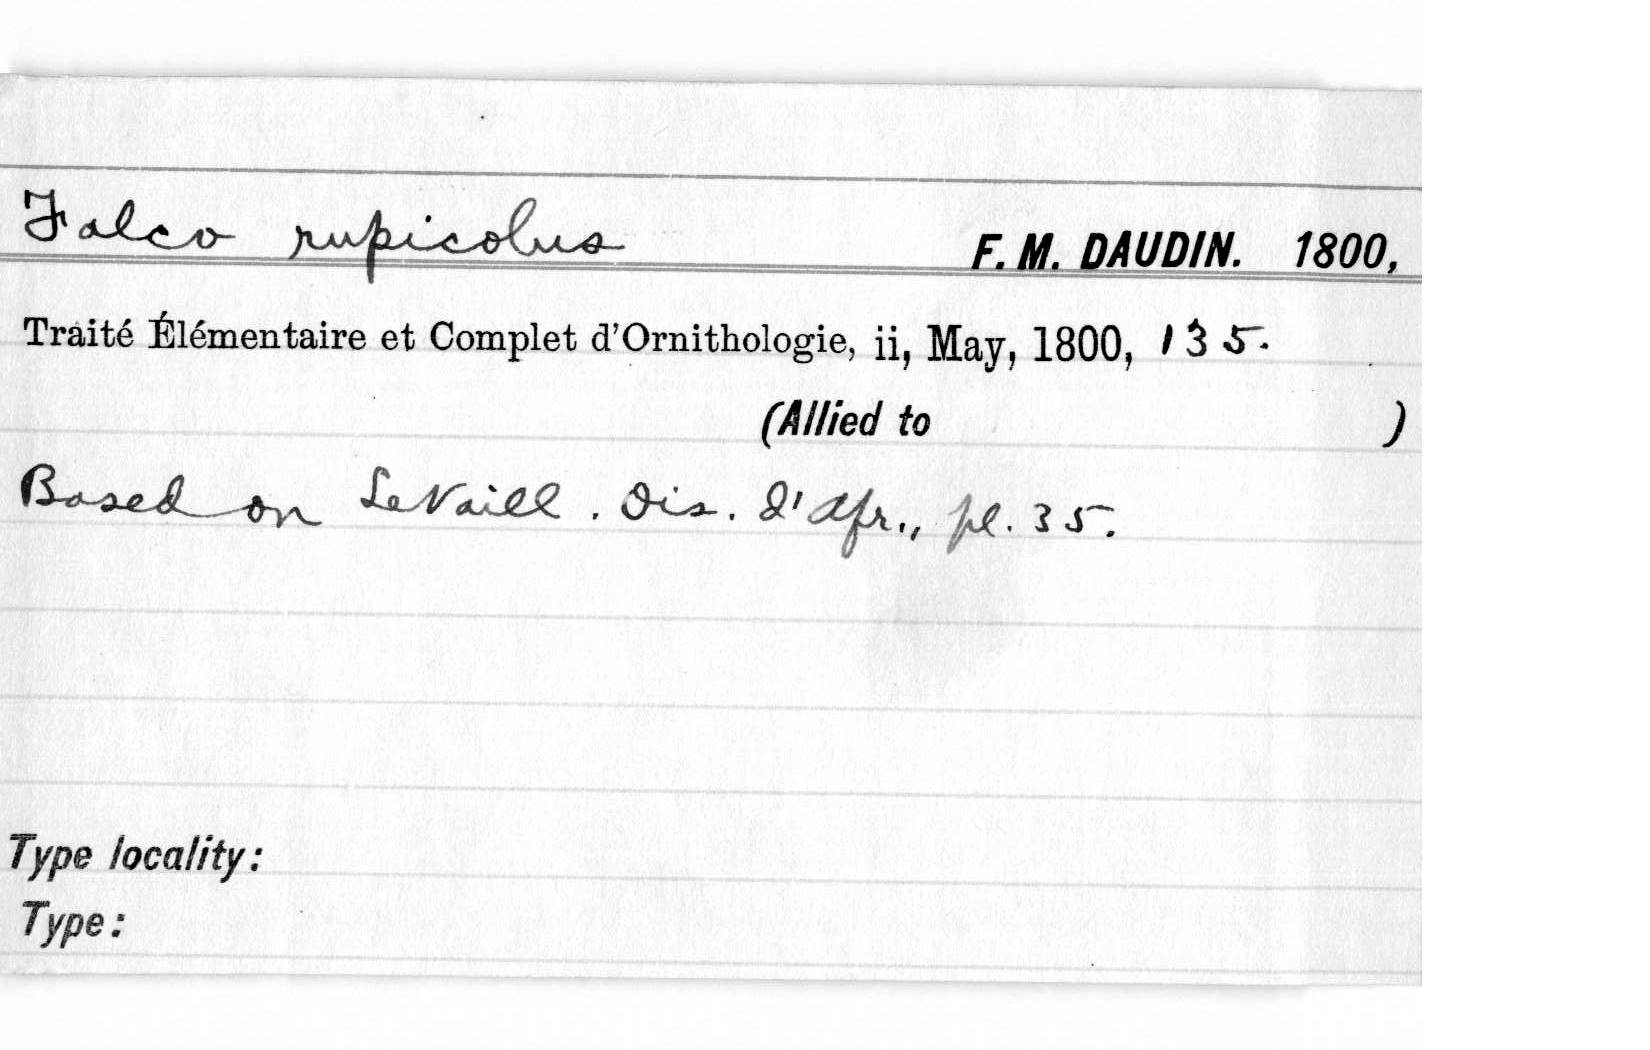 Falco rupicolus F. M. DAUDIN. 1800,
Traité Élémentaire et Complet d'Ornithologie, ii, May, 1800, 135.
(Allied to )
Based on LeVaill. Ois. d'Afr., pl. 35.
Type locality:
Type: